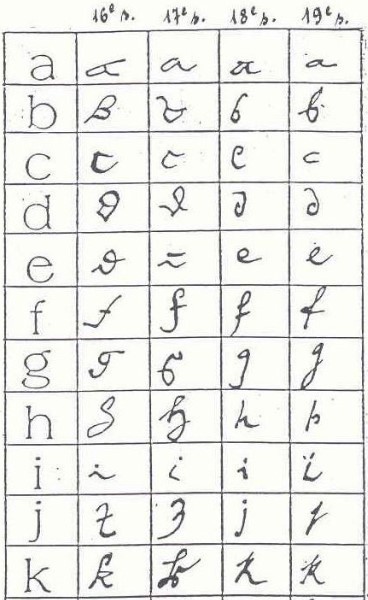 16e s. 17e s. 18e s. 19e s.
a a a a a
b b b b b
c c c c c
d d d d d
e e e e e
f f f f f
g g g g g
h h h h h
i i i i i
j j j j j
k k k k k